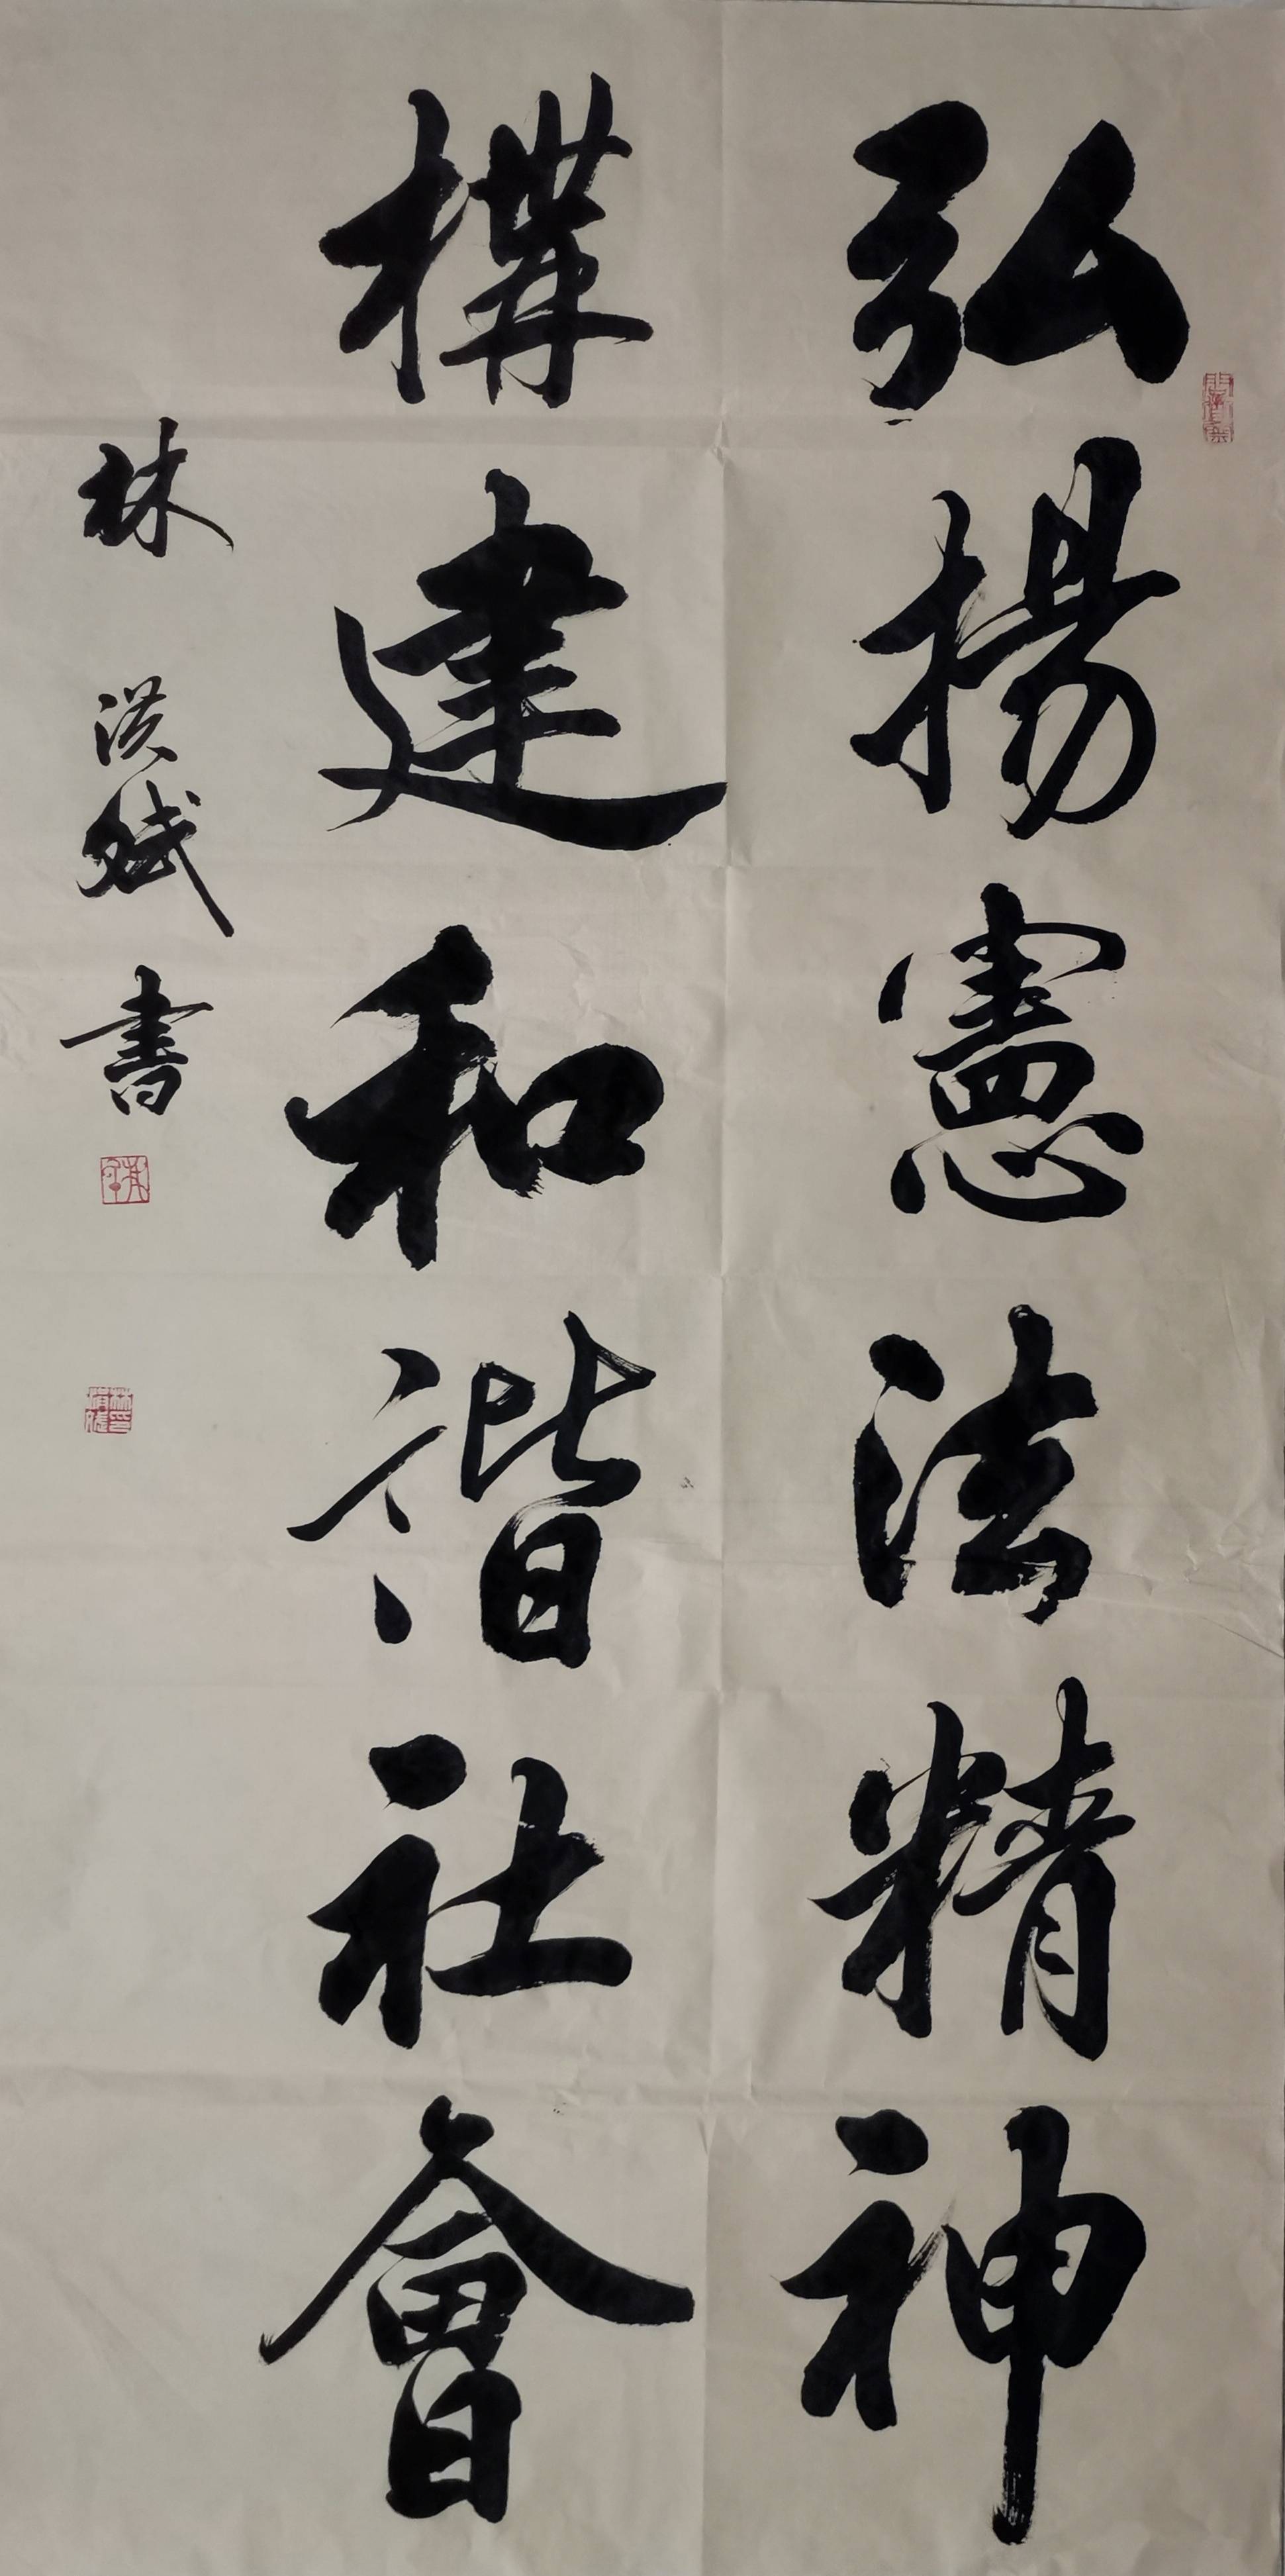 弘揚憲法精神
構建和諧社會
林洪斌書